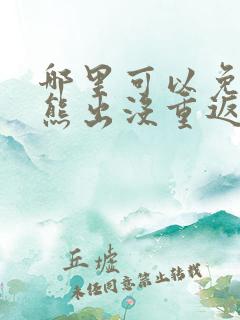 哪里可以免
熊出没重返
丘墟
未经同意禁止转载